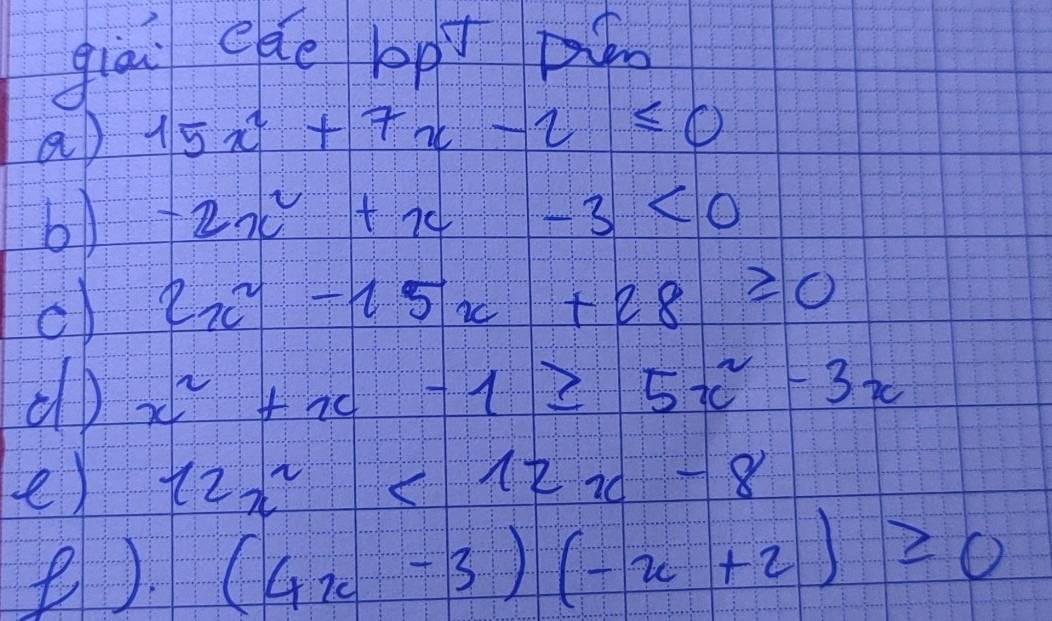 giải các bpT
a) 15x² + 7x - 2 ≤ 0
b) -2x² + x - 3 < 0
c) 2x² - 15x + 28 ≥ 0
d) x² + x - 1 ≥ 5x² - 3x
e) 12x² < 12x - 8
f). (4x - 3)(-x + 2) ≥ 0